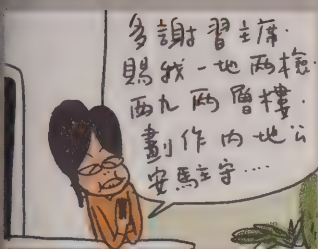 多謝習主席.
賜我一地两檢.
西九两層樓.
劃作內地公
安駐守....